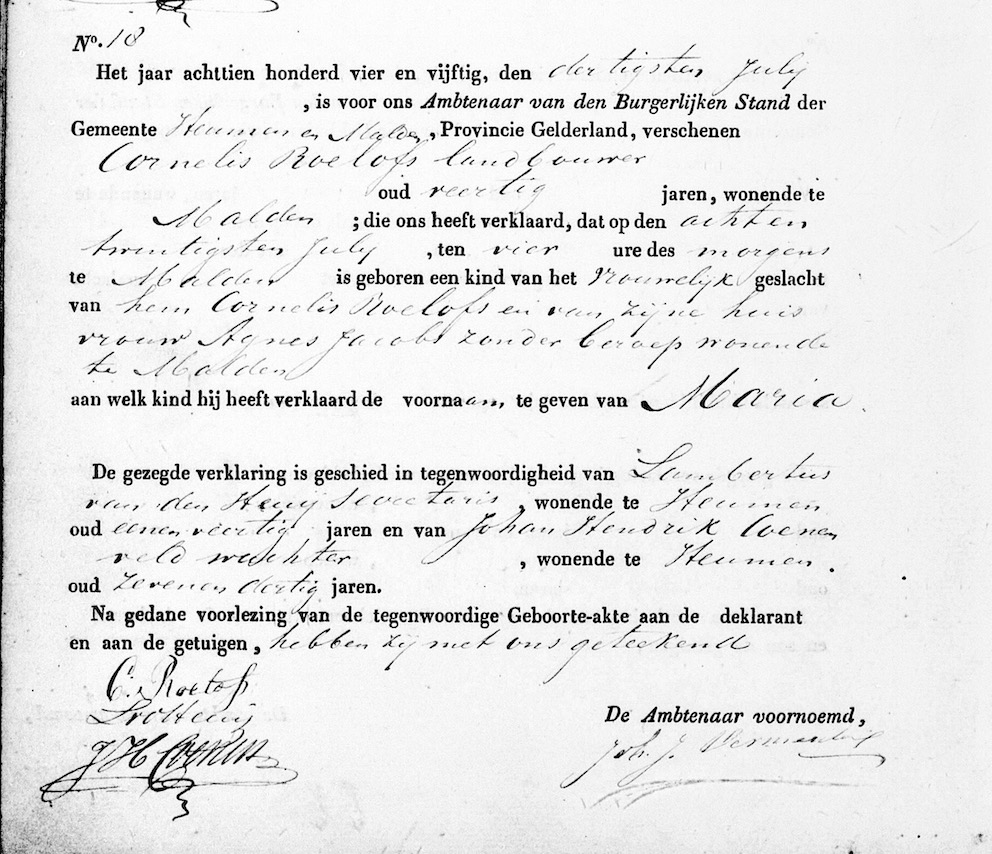 Nº. 18
Het jaar achttien honderd vier en vijftig, den dertigsten July
, is voor ons Ambtenaar van den Burgerlijken Stand der
Gemeente Heumen en Malden, Provincie Gelderland, verschenen
Cornelis Roelofs landbouwer
oud veertig jaren, wonende te
Malden ; die ons heeft verklaard, dat op den achten
twintigsten July , ten vier ure des morgens
te Malden is geboren een kind van het vrouwelijk geslacht
van hem Cornelis Roelofs en van zijne huis
vrouw Agnes Jacobs zonder beroep wonende
te Malden
aan welk kind hij heeft verklaard de voornaam, te geven van Maria.
De gezegde verklaring is geschied in tegenwoordigheid van Lambertus
van den Heuij secretaris , wonende te Heumen
oud eenenveertig jaren en van Johan Hendrik Coenen
veldwachter , wonende te Heumen.
oud zevenendertig jaren.
Na gedane voorlezing van de tegenwoordige Geboorte-akte aan de deklarant
en aan de getuigen, hebben zij met ons geteekend
C. Roelofs
LvdHeuij
JHCoenen
De Ambtenaar voornoemd,
Joh. J.